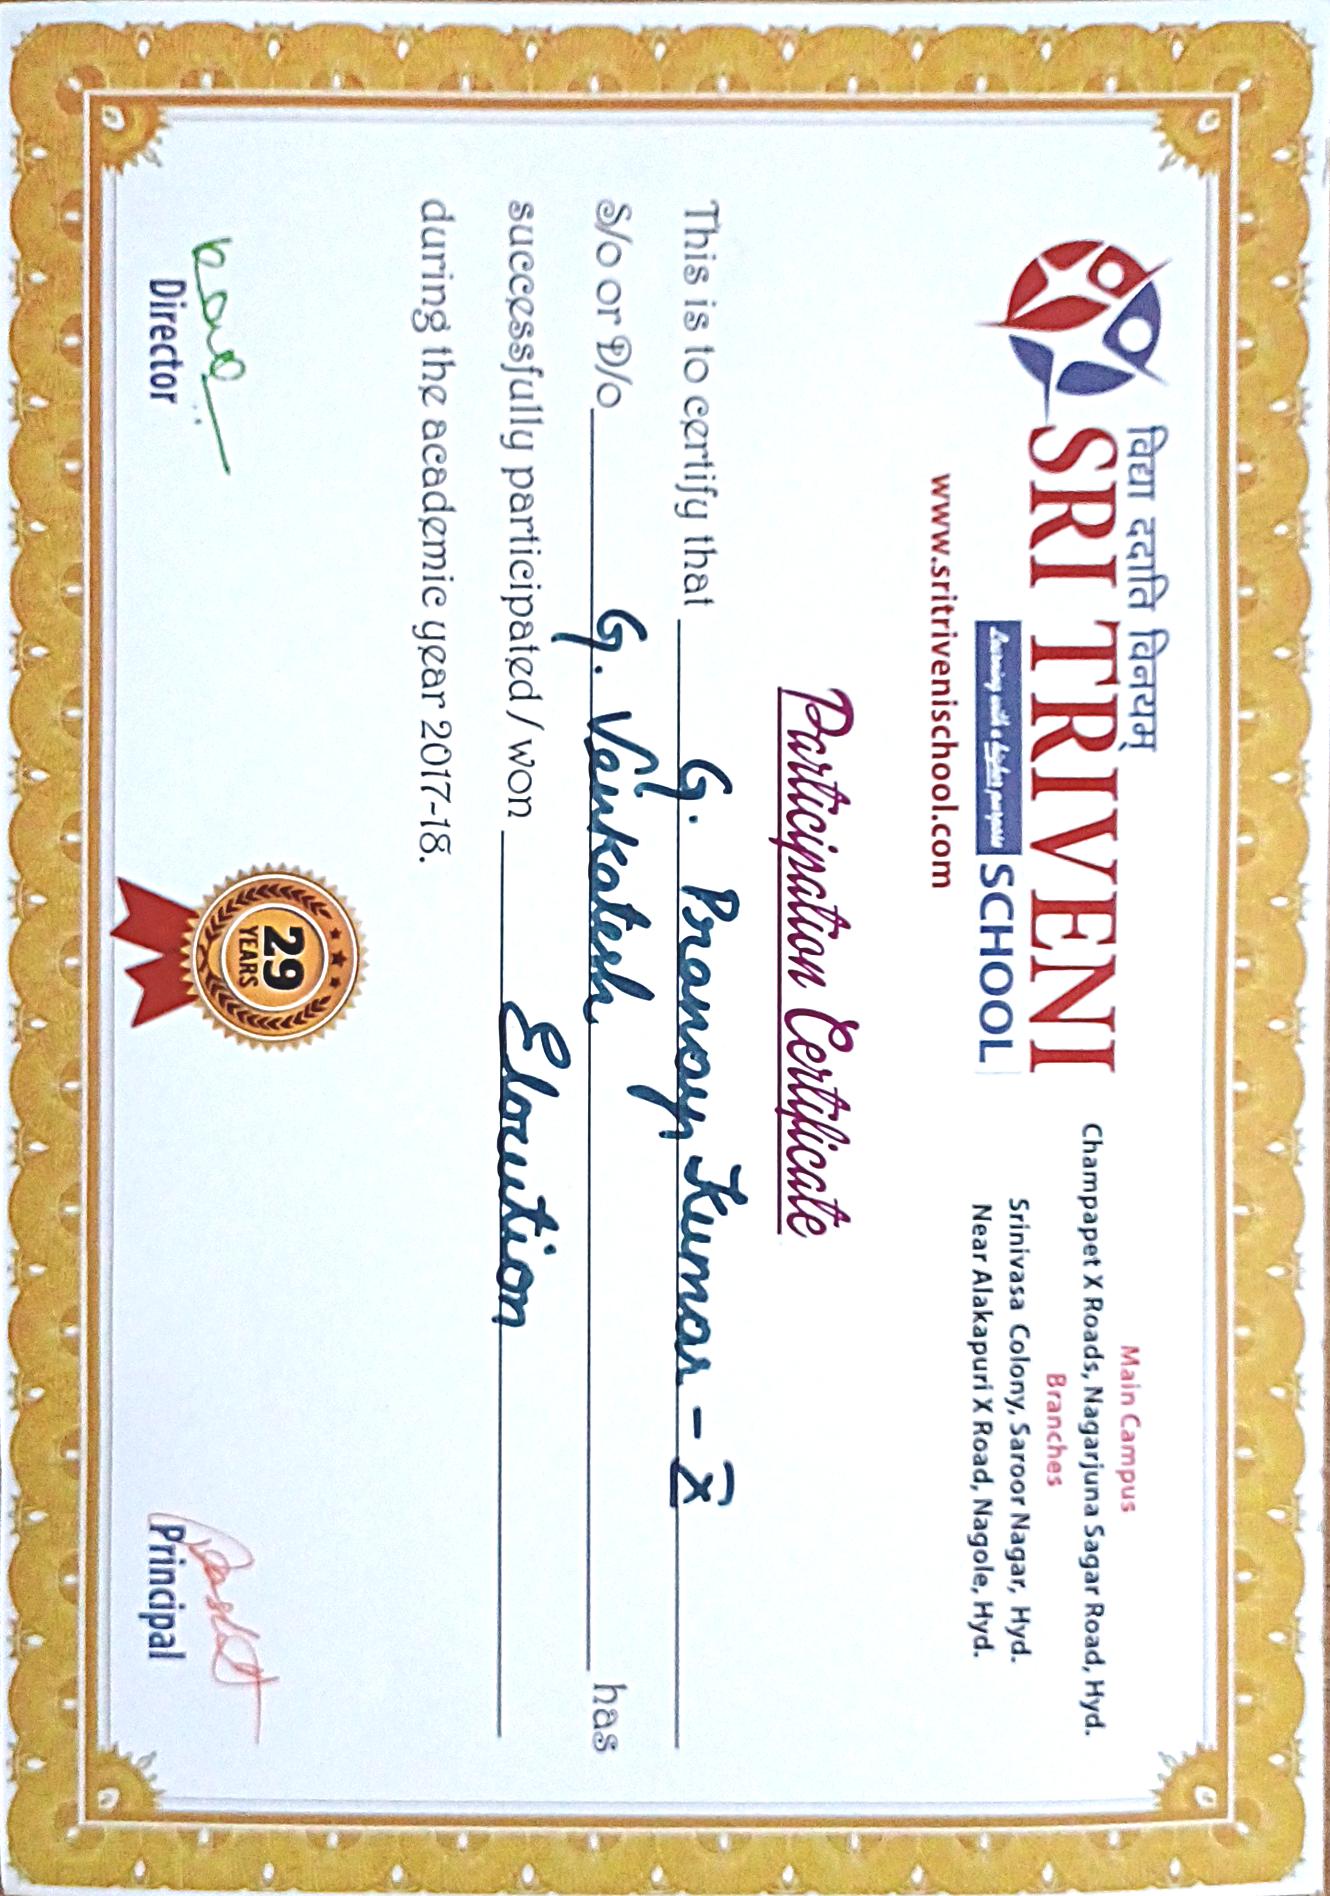 विद्या ददाति विनयम्
SRI TRIVENI
Learning with a higher purpose SCHOOL
www.sritrivenischool.com
Main Campus
Champapet X Roads, Nagarjuna Sagar Road, Hyd.
Branches
Srinivasa Colony, Saroor Nagar, Hyd.
Near Alakapuri X Road, Nagole, Hyd.
Participation Certificate
This is to certify that G. Pranay Kumar - X
S/o or D/o G. Venkatesh has
successfully participated / won Elocution
during the academic year 2017-18.
29
YEARS
Director
Principal